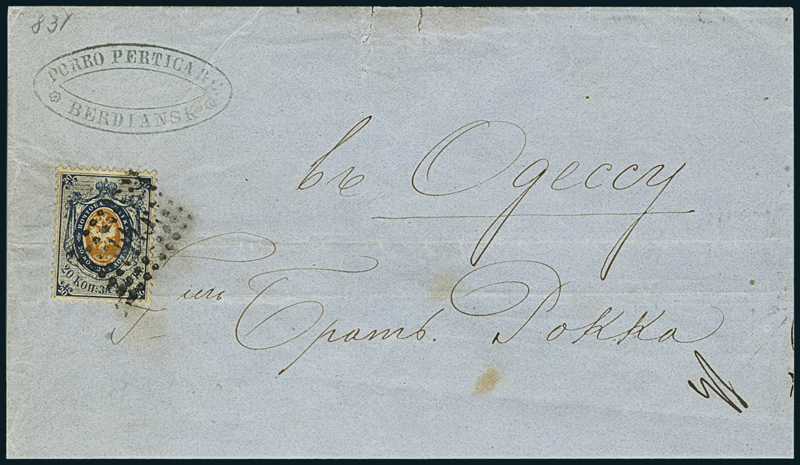 831
PORRO PERTICA
BERDIANSK
въ Одессу
20 КОП. ЗА
Г-мъ Брать. Рокка